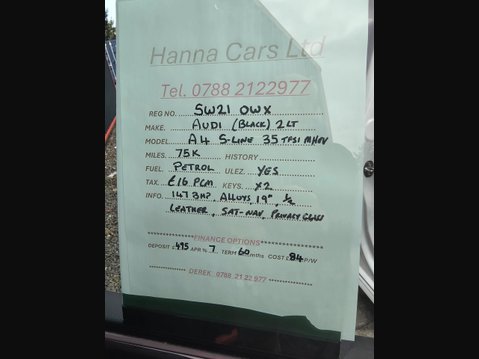 Hanna Cars Ltd
Tel. 0788 2122977
REG NO. SW21 OWX
MAKE. AUDI (BLACK) 2LT
MODEL. A4 S-LINE 35 TFSI MHEV
MILES. 75K HISTORY
FUEL. PETROL ULEZ. YES
TAX. £16 PCM KEYS. X2
INFO. 147 BHP, ALLOYS 19", 1/2
LEATHER, SAT-NAV, PRIVACY GLASS
FINANCE OPTIONS
DEPOSIT £495 APR % 7 TERM 60 mths COST £84 P/W
DEREK 0788 21 22 977